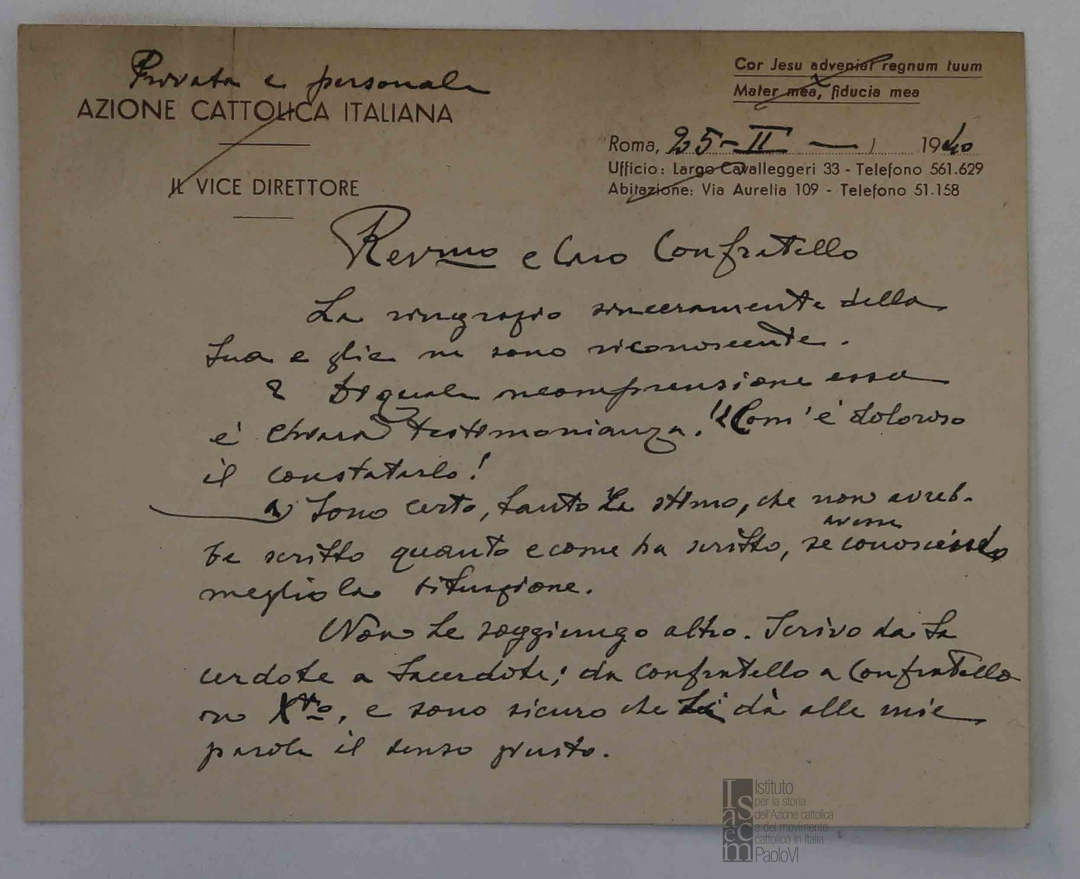 Privata e personale
AZIONE CATTOLICA ITALIANA
IL VICE DIRETTORE
Cor Jesu adveniat regnum tuum
Mater mea, fiducia mea
Roma, 25-II-1940
Ufficio: Largo Cavalleggeri 33 - Telefono 561.629
Abitazione: Via Aurelia 109 - Telefono 51.158
Revmo e Caro Confratello
La ringrazio sinceramente della
Sua e glie ne sono riconoscente.
Di quale incomprensione essa
e' chiara testimonianza! Com'è doloroso
il constatarlo!
Sono certo, tanto La stimo, che non avreb-
be scritto quanto e come ha scritto, se avesse
meglio la situazione.
Non Le soggiungo altro. Scrivo da Sa
cerdote a Sacerdote; da confratello a Confratello
in Xto, e sono sicuro che Lei dà alle mie
parole il senso giusto.
Istituto
per la storia
dell'Azione cattolica
e del movimento
cattolico in Italia
PaoloVI
Isacem